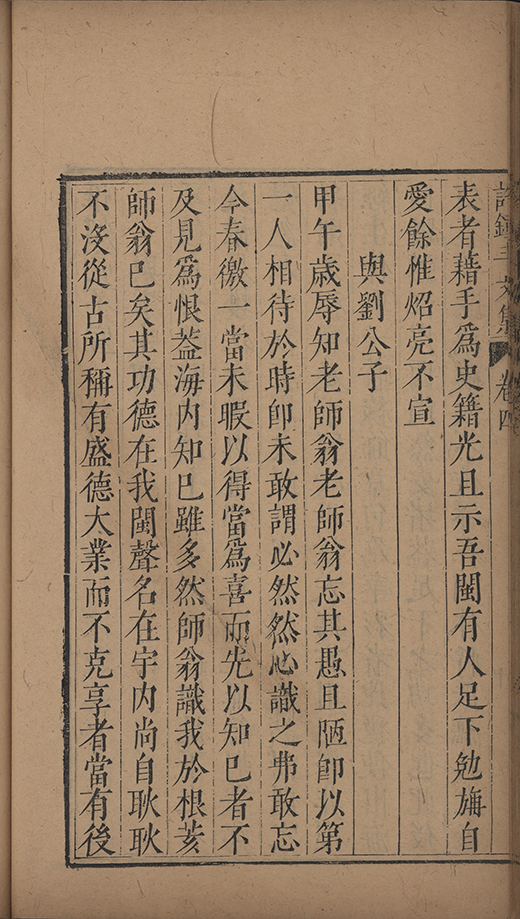 許鍾斗文集 卷四
表者藉手爲史籍光且示吾閩有人足下勉旃自
愛餘惟炤亮不宣
與劉公子
甲午歲辱知老師翁老師翁忘其愚且陋卽以第
一人相待於時卽未敢謂必然然心識之弗敢忘
今春徼一當未暇以得當爲喜而先以知巳者不
及見爲恨葢海內知巳雖多然師翁識我於根荄
師翁巳矣其功德在我閩聲名在宇內尚自耿耿
不沒從古所稱有盛德大業而不克享者當有後